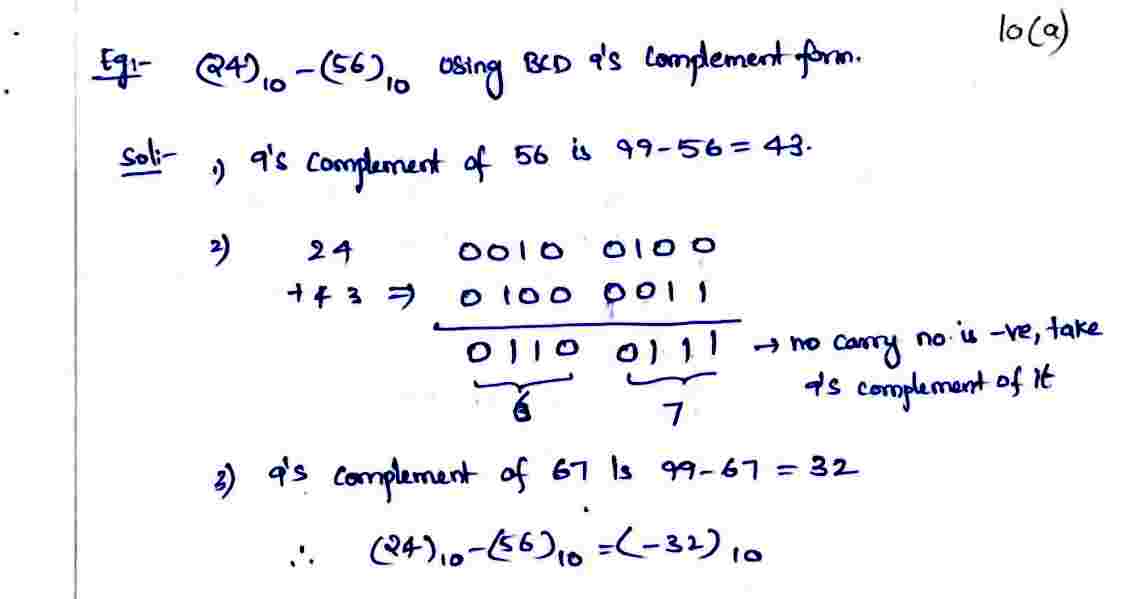 10(a)
Eg:- (24)₁₀ - (56)₁₀ using BCD 9's complement form.
Sol:- 1) 9's complement of 56 is 99-56 = 43.
2) 24 0010 0100
+43 ⇒ 0100 0011
0110 0111 → no carry no. is -ve, take
9's complement of it
6 7
3) 9's complement of 67 is 99-67 = 32
∴ (24)₁₀ - (56)₁₀ = (-32)₁₀